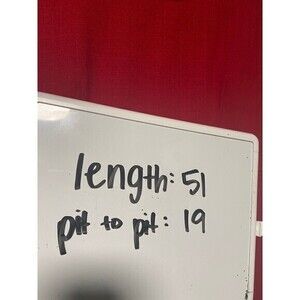 length: 51
pit to pit: 19